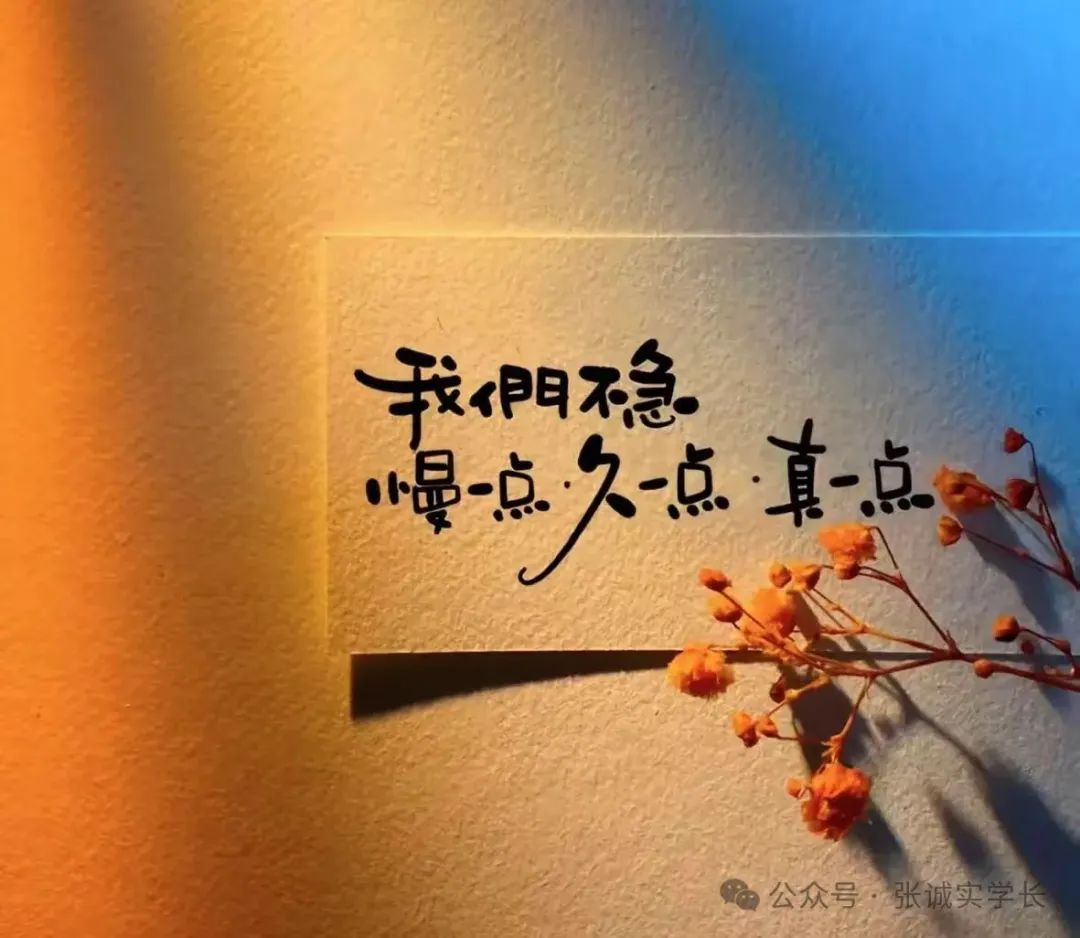 我們不急
慢一点·久一点·真一点
公众号·张诚实学长